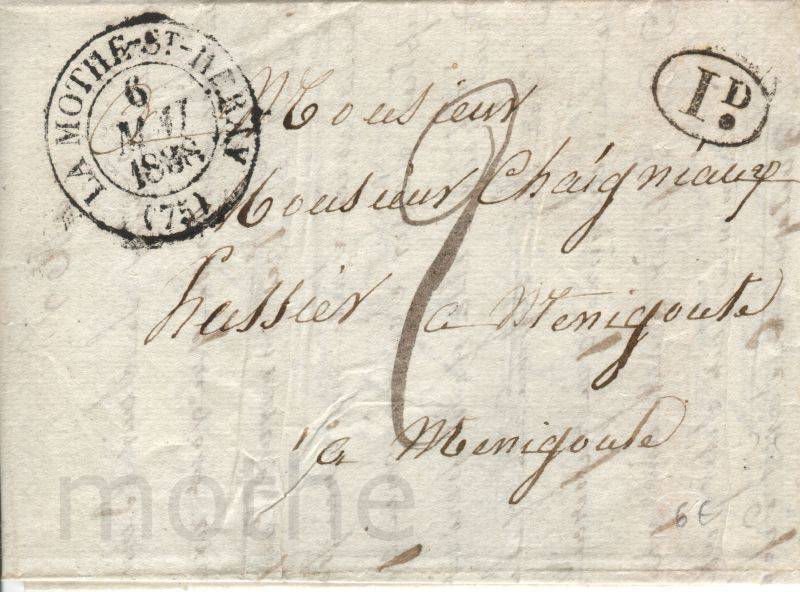 LA MOTHE-ST-HERAY
6
MAI
(75)
1D
Monsieur
Monsieur Chaigneaux
hussier a Menigoute
2
a Menigoute
mothe
6€